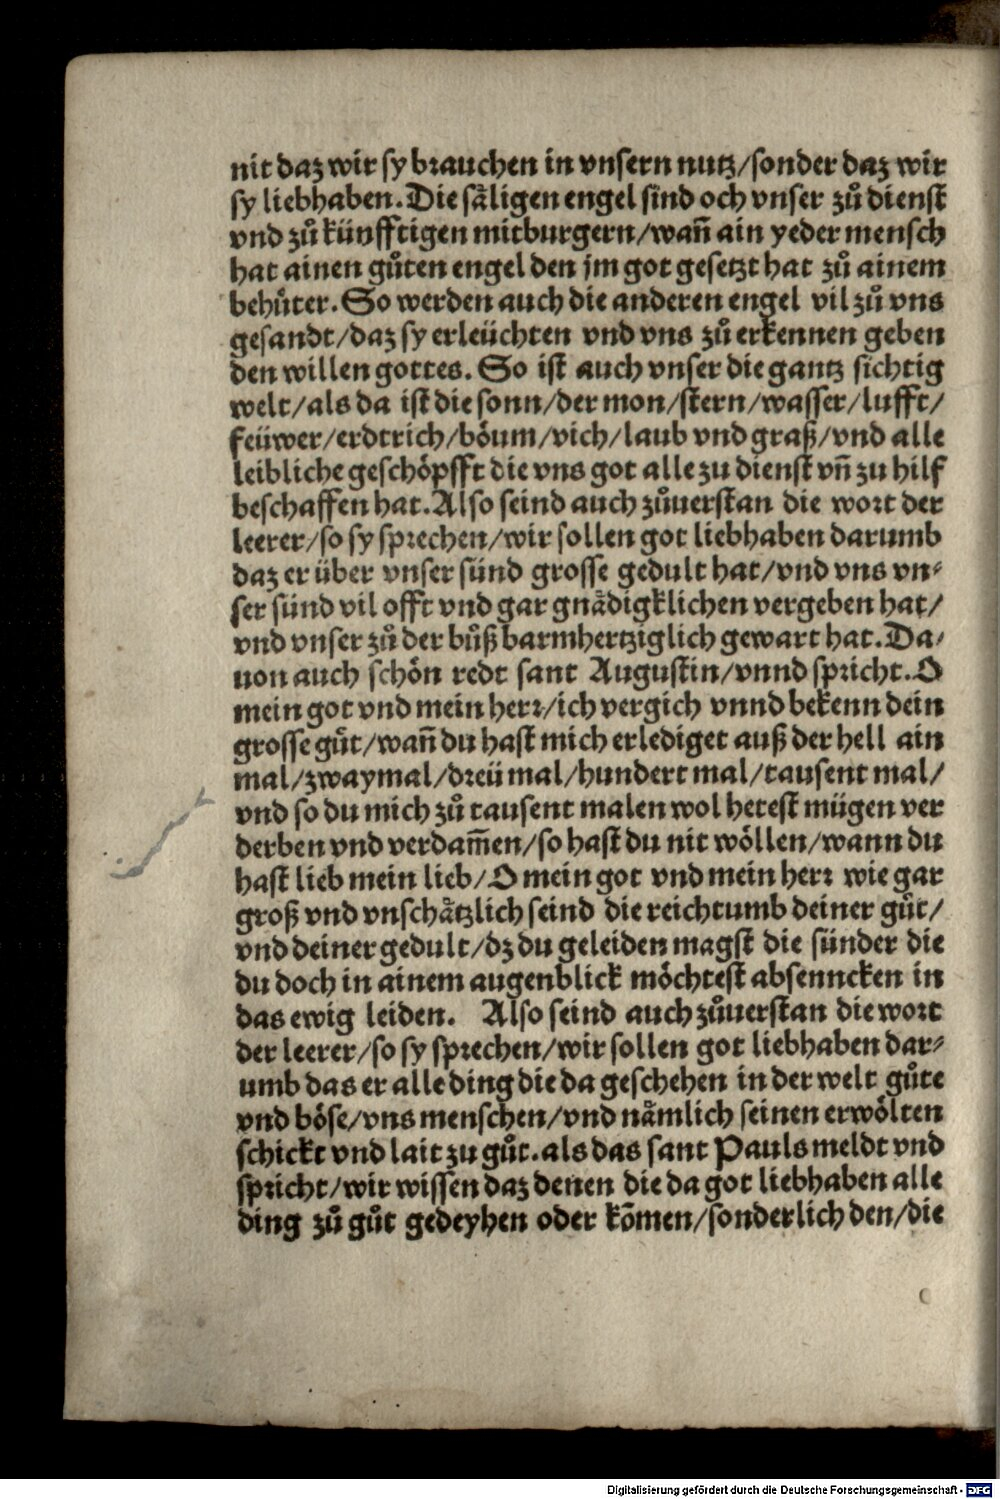 nit daz wir sy brauchen in vnsern nutz/sonder daz wir
sy liebhaben. Die sa̋ligen engel sind och vnser zů dienst
vnd zů künfftigen mitburgern/wañ ain yeder mensch
hat ainen gůten engel den jm got gesetzt hat zů ainem
behu̎ter. So werden auch die anderen engel vil zů vns
gesandt/daz sy erleüchten vnd vns zů erkennen geben
den willen gottes. So ist auch vnser die gantz sichtig
welt/als da ist die sonn/der mon/stern/wasser/lufft/
feüwer/erdtrich/böum/vich/laub vnd graß/vnd alle
leibliche geschöpfft die vns got alle zu dienst vñ zu hilf
beschaffen hat. Also seind auch zůuerstan die wort der
leerer/so sy sprechen/wir sollen got liebhaben darumb
daz er über vnser sünd grosse gedult hat/vnd vns vn⸗
ser sünd vil offt vnd gar gnädigklichen vergeben hat/
vnd vnser zů der bůß barmhertziglich gewart hat. Da⸗
uon auch schön redt sant Augustin/vnnd spricht. O
mein got vnd mein herr/ich vergich vnnd bekenn dein
grosse gu̎t/wañ du hast mich erlediget auß der hell ain
mal/zwaymal/dreü mal/hundert mal/tausent mal/
vnd so du mich zů tausent malen wol hetest mügen ver
derben vnd verdam̄en/so hast du nit wöllen/wann du
hast lieb mein lieb/O mein got vnd mein herr wie gar
groß vnd vnschätzlich seind die reichtumb deiner gu̎t/
vnd deiner gedult/dz du geleiden magst die sünder die
du doch in ainem augenblick möchtest absenncken in
das ewig leiden. Also seind auch zůuerstan die wort
der leerer/so sy sprechen/wir sollen got liebhaben dar⸗
umb das er alle ding die da geschehen in der welt gůte
vnd böse/vns menschen/vnd nämlich seinen erwölten
schickt vnd lait zu gůt. als das sant Pauls meldt vnd
spricht/wir wissen daz denen die da got liebhaben alle
ding zů gůt gedeyhen oder kõmen/sonderlich den/die
Digitalisierung gefördert durch die Deutsche Forschungsgemeinschaft - DFG